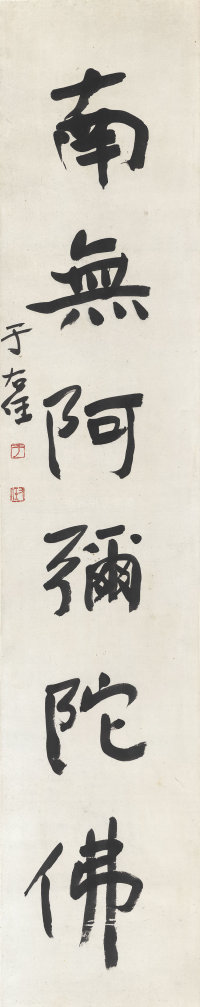 南無阿彌陀佛
于右任